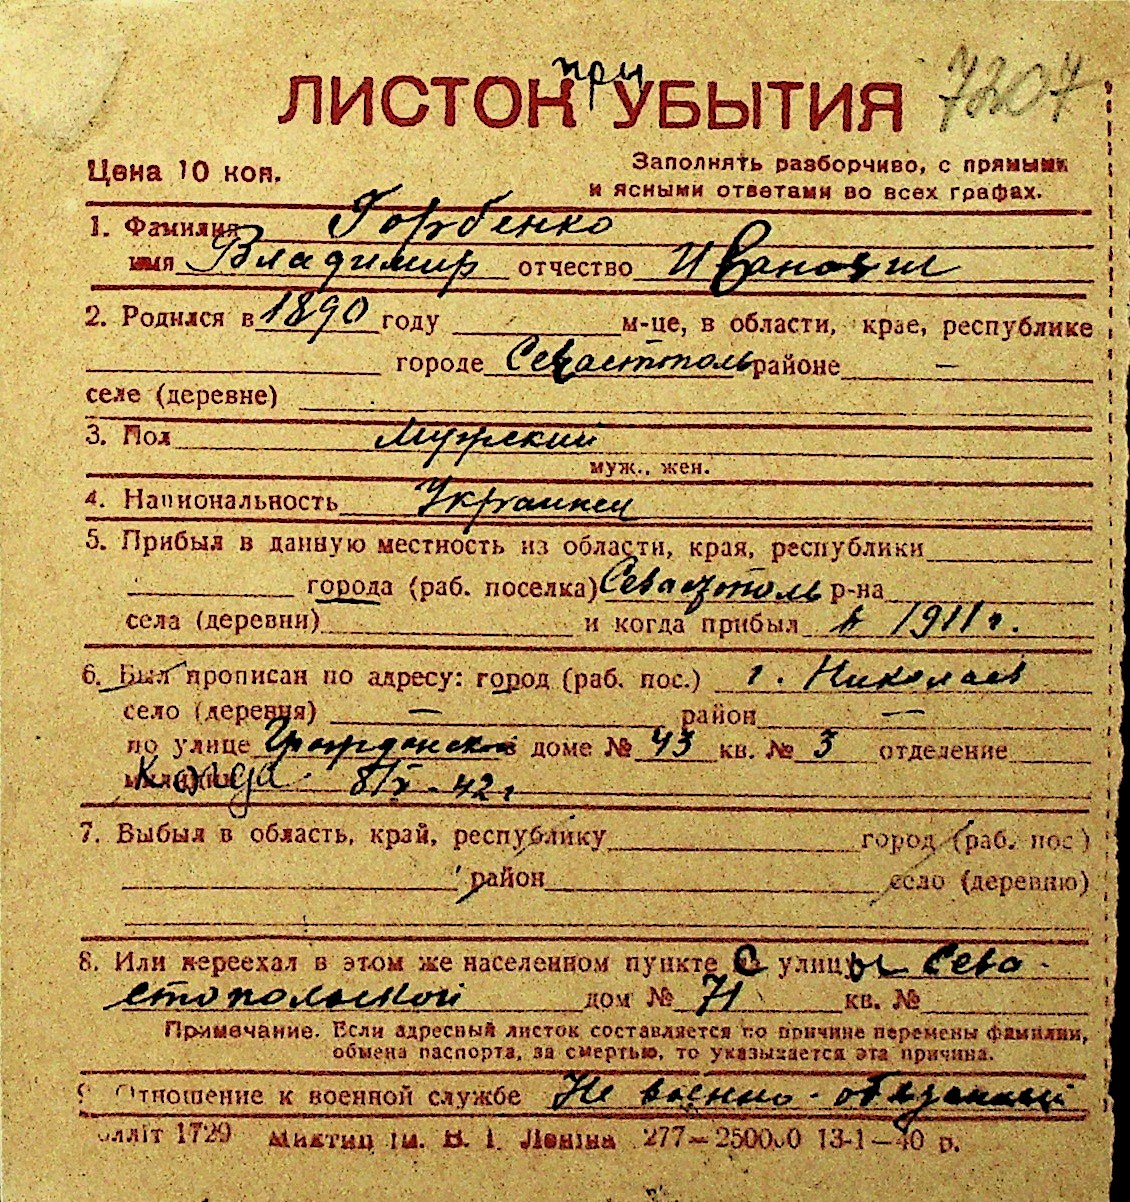 при
ЛИСТОК УБЫТИЯ 7207
Цена 10 коп.
Заполнять разборчиво, с прямыми
и ясными ответами во всех графах.
1. Фамилия Горбенко
имя Владимир отчество Иванович
2. Родился в 1890 году м-це, в области, крае, республике
городе Севастополь районе —
селе (деревне)
3. Пол Мужский
муж., жен.
4. Национальность Украинец
5. Прибыл в данную местность из области, края, республики
города (раб. поселка) Севастополь р-на
села (деревни) и когда прибыл в 1911 г.
6. Был прописан по адресу: город (раб. пос.) г. Николаев
село (деревня) — район —
по улице Гражданской в доме № 43 кв. № 3 отделение
милиции Когда 8/X-42 г
7. Выбыл в область, край, республику город (раб. пос.)
район село (деревню)
8. Или переехал в этом же населенном пункте С улицы Сева-
стопольской дом № 71 кв. №
Примечание. Если адресный листок составляется по причине перемены фамилии,
обмена паспорта, за смертью, то указывается эта причина.
9. Отношение к военной службе Не военно-обязанный
1729 Миктиц ім. В. І. Леніна 277—250000 13-1—40 р.